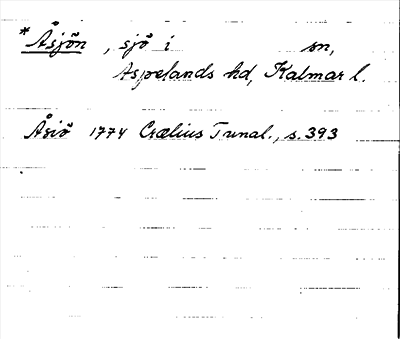 *Åsjön, sjö i sn,
Aspelands hd, Kalmar l.
Åsiö 1774 Crælius Tunal., s. 393